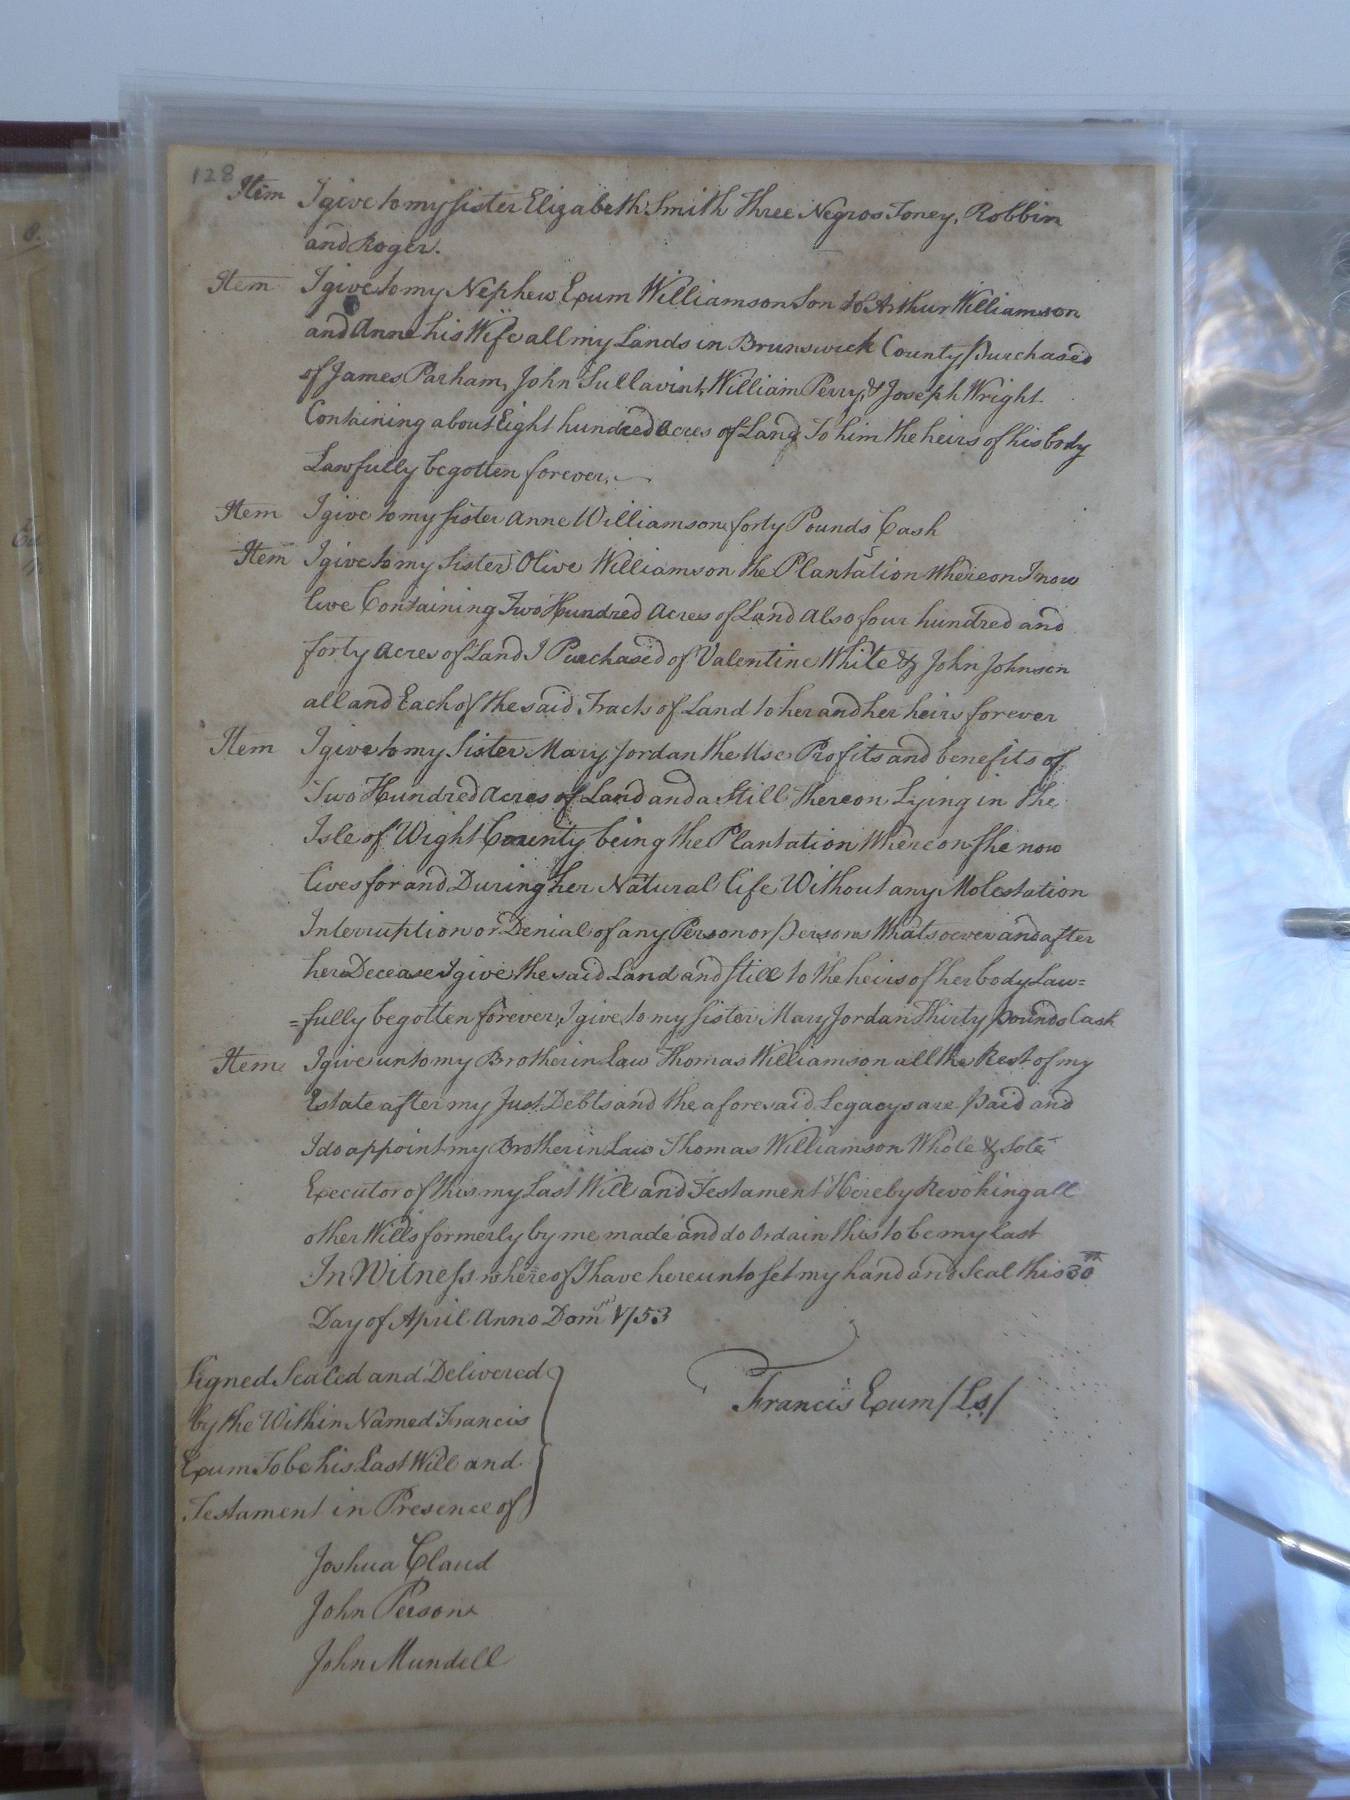 128
Item I give to my sister Elizabeth Smith Three Negros Toney, Robbin
and Roger.
Item I give to my Nephew Exum Williamson Son to Arthur Williamson
and Anne his Wife all my Lands in Brunswick County Purchased
of James Parham, John Sullavint, William Perry, & Joseph Wright
Containing about Eight hundred Acres of Land To him the heirs of his body
Lawfully begotten forever.
Item I give to my sister Anne Williamson forty Pounds Cash
Item I give to my Sister Olive Williamson the Plantation Whereon I now
live Containing Two Hundred Acres of Land also four hundred and
forty Acres of Land I Purchased of Valentine White & John Johnson
all and Each of the said Tracts of Land to her and her heirs forever
Item I give to my Sister Mary Jordan the Use Profits and benefits of
Two Hundred Acres of Land and a Still Thereon Lying in the
Isle of Wight County being the Plantation Whereon she now
lives for and During her Natural life Without any Molestation
Interruption or Denial of any Person or Persons Whatsoever and after
her Decease I give the said Land and still to the heirs of her body Law=
=fully begotten forever, I give to my sister Mary Jordan Thirty pounds Cash
Item I give unto my Brother in Law Thomas Williamson all the Rest of my
Estate after my Just Debts and the aforesaid Legacys are Paid and
I do appoint my Brother in Law Thomas Williamson Whole & Sole
Executor of this my Last Will and Testament Hereby Revoking all
other Wills formerly by me made and do Ordain this to be my last
In Witness whereof I have hereunto set my hand and Seal this 30th
Day of April Anno Dom 1753
Signed Sealed and Delivered
by the Within Named Francis
Exum To be his Last Will and
Testament in Presence of
Francis Exum /Ls/
Joshua Claud
John Persons
John Mundell